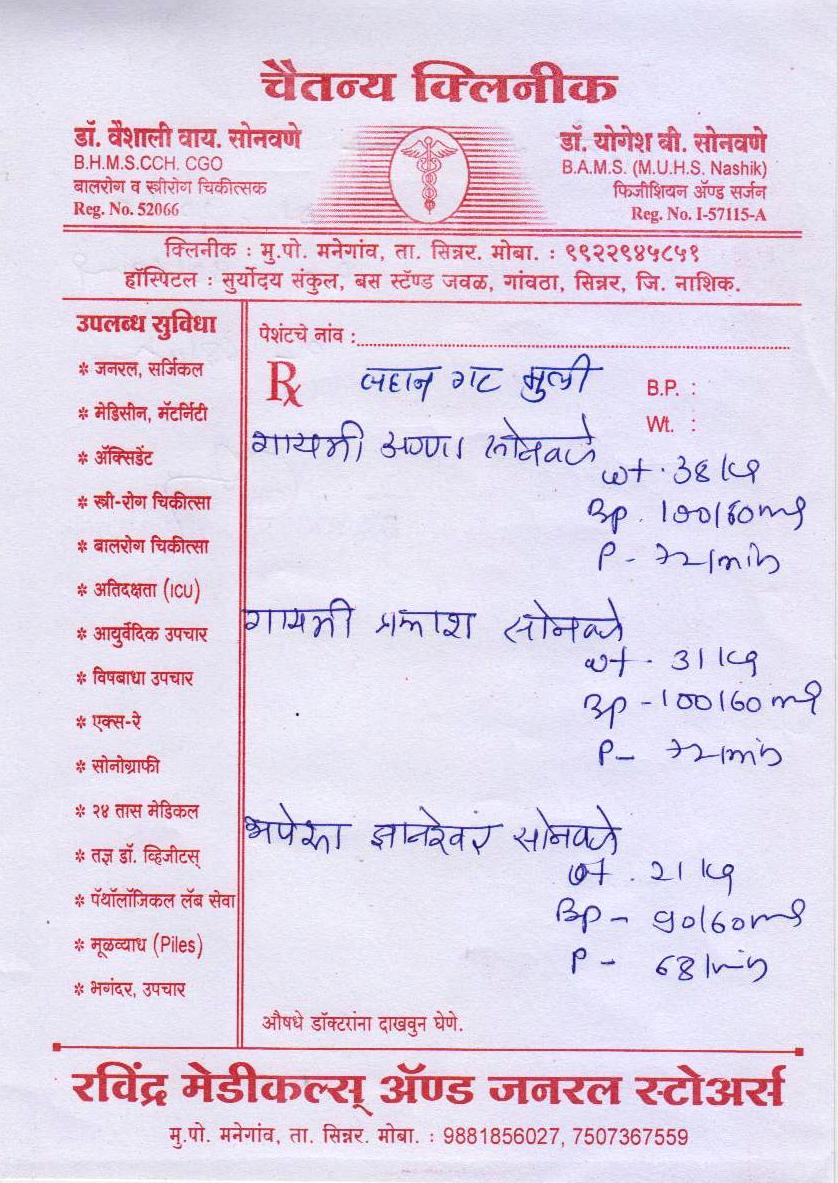 चैतन्य क्लिनीक
डॉ. वैशाली वाय. सोनवणे
B.H.M.S.CCH. CGO
बालरोग व स्त्रीरोग चिकीत्सक
Reg. No. 52066
डॉ. योगेश बी. सोनवणे
B.A.M.S. (M.U.H.S. Nashik)
फिजीशियन ॲण्ड सर्जन
Reg. No. I-57115-A
क्लिनीक : मु.पो. मनेगांव, ता. सिन्नर. मोबा. : ९९२२९४५८५१
हॉस्पिटल : सुर्योदय संकुल, बस स्टॅण्ड जवळ, गांवठा, सिन्नर, जि. नाशिक.
उपलब्ध सुविधा
* जनरल, सर्जिकल
* मेडिसीन, मॅटर्निटी
* ॲक्सिडेंट
* स्त्री-रोग चिकीत्सा
* बालरोग चिकीत्सा
* अतिदक्षता (ICU)
* आयुर्वेदिक उपचार
* विषबाधा उपचार
* एक्स-रे
* सोनोग्राफी
* २४ तास मेडिकल
* तज्ञ डॉ. व्हिजीटस्
* पॅथॉलॉजिकल लॅब सेवा
* मूळव्याध (Piles)
* भगंदर, उपचार
पेशंटचे नांव :
Rx लहान गट मुली
B.P. :
Wt. :
गायत्री अण्णा सोनवणे
wt. 38 kg
Bp. 100/60 mg
P - 72/min
गायत्री प्रकाश सोनवणे
wt. 31 kg
Bp - 100/60 mg
P - 72/min
अपेक्षा ज्ञानेश्वर सोनवणे
wt. 21 kg
Bp - 90/60 mg
P - 68/min
औषधे डॉक्टरांना दाखवुन घेणे.
रविंद्र मेडीकल्स् ॲण्ड जनरल स्टोअर्स
मु.पो. मनेगांव, ता. सिन्नर. मोबा. : 9881856027, 7507367559